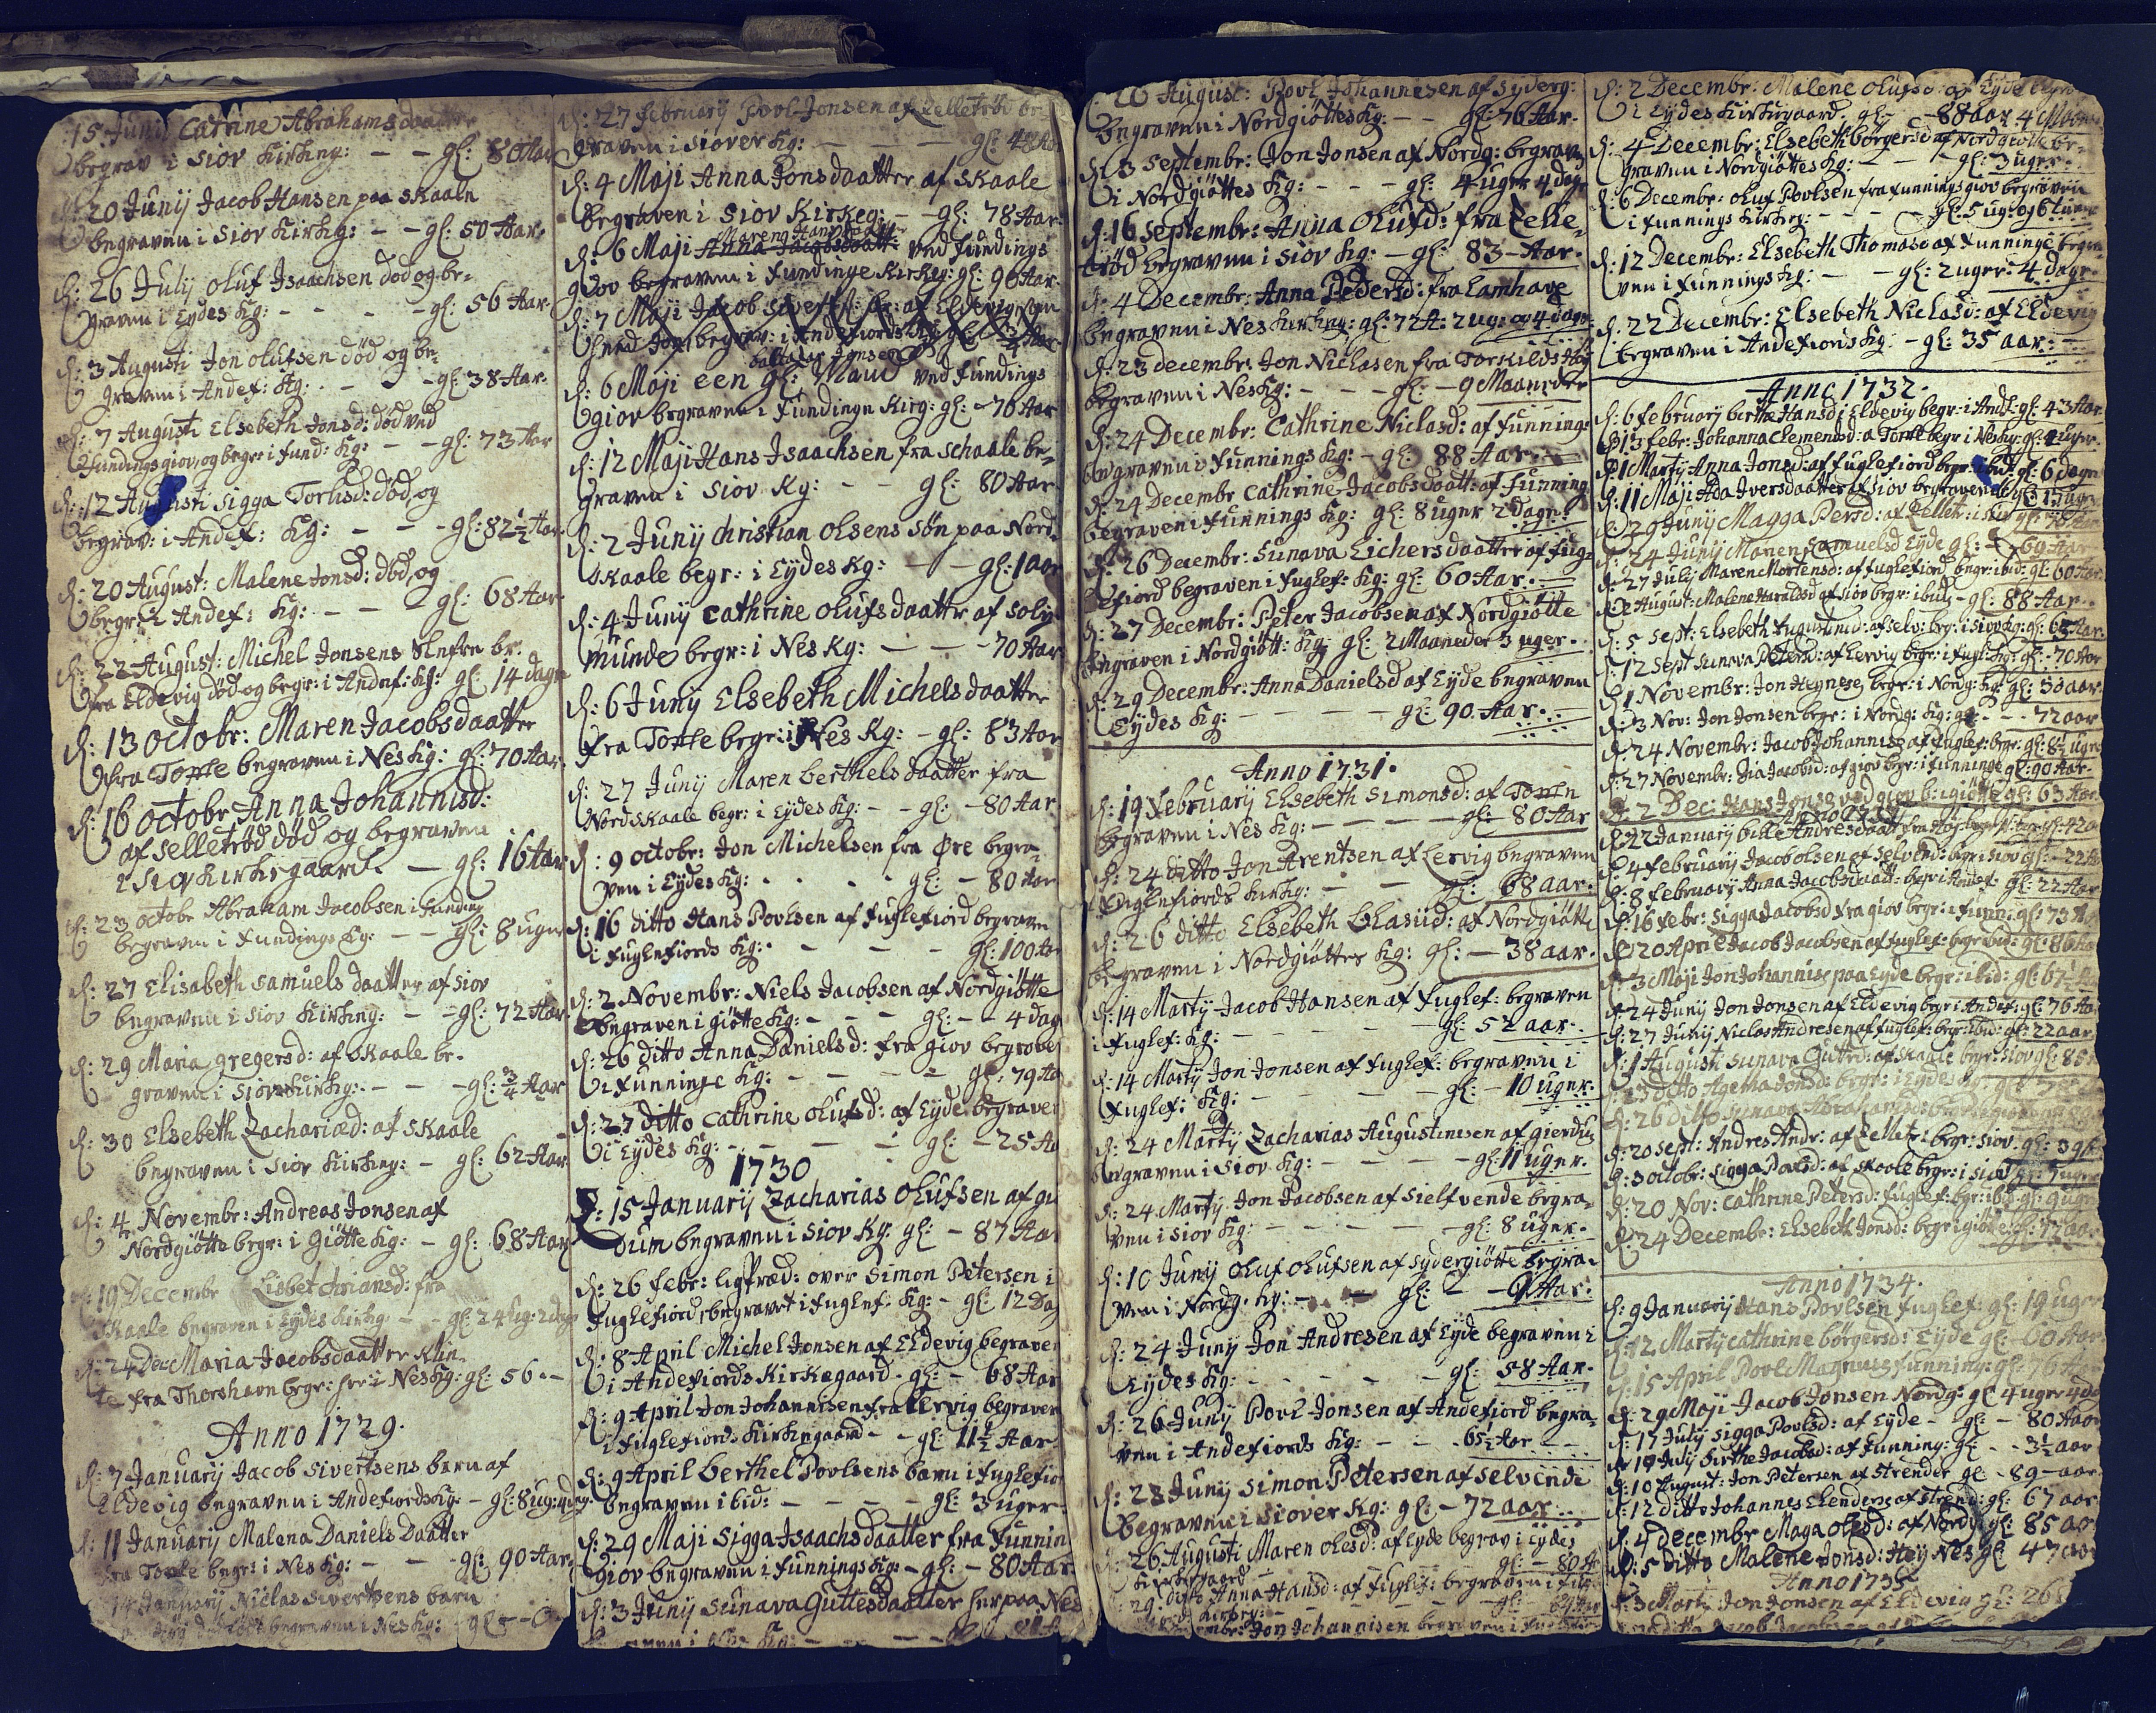 15 Junii Catrine Abrahams daatter
begrav i Siov Kirkeg: - - gl: 80 Aar
20 Junij Jacob Hansen paa Skaaln
begraven i Siov Kirkg: - - gl: 50 Aar.
d: 26 Julij Oluf Isaachsen død og be-
graven i Eydes Kg: - - - - gl: 56 Aar.
d: 3 Augusti Jon Olufsen død og be-
graven i Andef: Kg: - - - gl: 38 Aar.
d: 7 Augusti Elsebeth Jonsd: død ved
Fundings giov, og begr: i Fund: Kg: - - gl: 73 Aar
d: 12 Augusti Sigga Torlisd: død, og
begrav: i Andef: Kg: - - - gl: 82½ Aar
d: 20 August: Malene Jonsd: død, og
begr: i Andef: Kg: - - - gl: 68 Aar
d: 22 August: Michel Jonsens br.
fra Eldevig død og begr: i Andef: Kg: gl: 14 dage
d: 13 Octobr: Maren Jacobsdaatter
fra Torke begraven i Nes Kg: gl: 70 Aar.
d: 16 Octobr Anna Johannisd:
af Selletrød død og begraven
i Siov Kirkegaard. - gl: 16 Aar
d: 23 Octobr Abraham Jacobsen i Funding
begraven i Fundings Kg: - - gl: 8 uger
d: 27 Elisabeth Samuels daatter af Siov
begraven i Siov Kirkeg: - - gl: 72 Aar
d: 29 Maria Gregersd: af Skaale be-
graven i Siov Kirkg: - - - gl: ¾ Aar
d: 30 Elsebeth Zachariæd: af Skaale
begraven i Siov Kirkeg: - gl: 62 Aar
d: 4 Novembr: Andreas Jonsen af
Nordgiøtte begr: i Giøtte Kg: - gl: 68 Aar
d: 19 Decembr Lisbet fra
Skaale begraven i Eydes Kirkg: - - gl:
d: 24 Dec Maria Jacobsdaatter Klin-
te fra Thorshavn begr: her i Nes Kg: gl: 56 --
Anno 1729.
d: 7 January Jacob Sivertsens barn af
Eldevig begraven i Andefiords Kg: - gl: 8 ug: 4 dag.
d: 11 January Malena Daniels Daatter
fra Torke begr: i Nes Kg: - - - gl: 90 Aar
14 January Niclas Sivertsens barn
begraven i Nes Kg: gl:
d: 27 February Povl Jonsen af Zelletrød be-
graven i Siover Kg: - - - gl: 48 Aar
d: 4 Maji Anna Jonsdaatter af Skaale
begraven i Siov Kirkeg: - - gl: 78 Aar
Maren Hansdaatter
d: 6 Maji Anna Jacobsdaatt: ved Fundings
giov begraven i Fundinge Kirkg: gl: 90 Aar.
d: 7 Maji Jacob
¾ Aar
baltasar Jonsen
d: 6 Maji een gl: Mand ved Fundings
giov begraven i Fundinge Kirg: gl: - 76 Aar
d: 12 Maji Hans Isaachsen fra Schaale be-
graven i Siov Kg: - - gl: 80 Aar.
d: 2 Junij Christian Olsens Søn paa Nord-
skaale begr: i Eydes Kg: - - gl: 1 aar
d: 4 Junij Cathrine Olufs daattr af Soly-
munde begr: i Nes Kg: - - - 70 Aar
d: 6 Junij Elsebeth Michelsdaatter
fra Torke begr: i Nes Kg: - gl: 83 Aar
d: 27 Junij Maren Berthels daatter fra
Nordskaale begr: i Eydes Kg: - - gl: - 80 Aar
d: 9 Octobr: Jon Michelsen fra Øre begra-
ven i Eydes Kg: - - - - gl: - 80 Aar
d: 16 ditto Hans Povlsen af Fuglefiord begraven
i Fuglefiords Kg: - - - - gl: 100 Aar
d: 2 Novembr: Niels Jacobsen af Nordgiøtte
begraven i giøtte Kg: - - - gl: - - 4 dag
d: 26 ditto Anna Daniels d: fra giov begraven
i Funninge Kg: - - - - gl: 79 Aar
d: 27 ditto Cathrine Olufsd: af Eyde begraven
i Eydes Kg: - - - - gl: - 25 Aar
1730
d: 15 January Zacharias Olufsen af gier
dum begraven i Siov Kg: gl: - 87 Aar
d: 26 Febr: ligpræd: over Simon Petersen i
Fuglefiord, begravet i Fuglef: Kg: - gl: 12 Da
d: 8 April Michel Jonsen af Eldevig begraven
i Andefiords Kirkegaard - gl: - 68 Aar
d: 9 April Jon Johannisen fra Lervig begraven
i Fuglefiords Kirkegaard - - gl: 11½ Aar
d: 9 April Berthel Povlsens barn i Fuglefior
begraven ibid: - - - - gl: 3 uger.
d: 29 Maji Sigga Isaachsdaatter fra Funnin
giov begraven i Funnings Kg: - gl: - 80 Aar
d: 3 Junij Sunava Guttesdaatter her paa Nes
26 August: Povl Johannesen af Syderg:
begraven i Nordgiøttes Kg: - - gl: 76 Aar.
d: 3 Septembr: Jon Jonsen af Nordg: begraven
i Nordgiøttes Kg: - - - gl: 4 uger 4 dage
d: 16 Septembr: Anna Olufd: fra Zelle-
trød begraven i Siov Kg: - gl: 83 - Aar.
d: 4 Decembr: Anna Pedersd: fra Lamhave
begraven i Nes Kirkeg: gl: 72 A: 2 ug: og 4 dage
d: 23 decembr: Jon Niclasen fra Torkilds
begraven i Nes Kg: - - - gl: - 9 Maaneder
d: 24 Decembr: Cathrine Niclasd: af Funning:
begraven i Funnings Kg: - gl: 88 Aar. -
d: 24 Decembr Cathrine Jacobsdaatt: af Funning
begraven i Funnings Kg: gl: 8 uger 2 dage.
d: 26 Decembr: Sunava Eichersdaatter af Fug-
lefiord begraven i Fuglef: Kg: gl: 60 Aar. -
d: 27 Decembr: Peter Jacobsen af Nordgiøtte
begraven i Nordgiøtt: Kg: gl: 2 Maaneder 3 uger.
d: 29 Decembr: Anna Danielsd af Eyde begraven
Eydes Kg: - - - - gl: 90. Aar. -
Anno 1731.
d: 19 February Elsebeth Simonsd: af Torke
begraven i Nes Kg: - - - - gl: 80 Aar
d: 24 ditto Jon Arentsen af Lervig begraven
Fuglefiords Kirkg: - - - gl: 68 aar.
d: 26 ditto Elsebeth Glasiid: af Nordgiøtte
begraven i Nordgiøttes Kg: gl: - 38 aar.
d: 14 Martij Jacob Hansen af Fuglef: begraven
i Fuglef: Kg: - - - - gl: 52 aar.
d: 14 Martij Jon Jonsen af Fuglef: begraven i
Fuglef: Kg: - - - - gl: - 10 uger.
d: 24 Martij Zacharias Augustinesen af gierdu
begraven i Siov Kg: - - - - gl: 11 uger.
d: 24 Martij Jon Jacobsen af Sielfvende begra-
ven i Siov Kg: - - - - gl: 8 uger.
d: 10 Junij Oluf Olufsen af Sydergiøtte begra-
ven i Nordg. Kg: - - gl: - Aar.
d: 24 Junij Jon Andresen af Eyde begraven i
Eydes Kg: - - - - gl: 58 Aar.
d: 26 Junij Povl Jonsen af Andefiord begra-
ven i Andefiords Kg: - - - 65½ Aar - -
d: 23 Junij Simon Petersen af Selvende
begraven i Siover Kg: gl: - 72 aar. -
d: 26 Augusti Maren Olesd: af Eyde begrav i Eydes
Kirkegaard - - - gl: - 80 A
d: 29 ditto Anna Hansd: af Fuglef: begraven i Fug
Kirkeg: - - - gl:
Jon Johannisen begraven i Fuglefior
d: 2 Decembr: Malene Olufsd: af Eyde begra
i Eydes Kirkegaard. gl: - 88 aar 4 Maan
d: 4 Decembr: Elsebeth børgersd af Nordgiøtte be-
graven i Nordgiøttes Kg: - - - gl: 3 uger.
d: 6 Decembr: Oluf Povlsen fra Funnings giov begraven
i Funnings Kirkeg: - - - gl: 5 ug: og 6 tiimer
d: 12 Decembr: Elsebeth Thomasd af Funninge begra
ven i Funnings Kg: - - gl: 2 uger: 4 dage.
d: 22 Decembr: Elsebeth Niclasd: af Eldevig
begraven i Andefiords Kg: - gl: 35 aar: -
Anno 1732.
d: 6 February berthe Hansd i Eldevig begr: i Andf: gl: 43 Aar
d: 13 Febr: Johanna Clemendsd: a Torke begr i Nes Kg: gl: uger.
d: 1 Martij Anna Jonsd: af Fuglefiord begr: ibid: gl: 6 dage
d: 11 Maji Ada Iversdaatter af Siov begraven
d: 29 Junij Magga Persd: af Zelletr: i Siov gl:
d: 24 Junij Maren Samuelsd Eyde gl: 69 Aar
d: 27 Julij Maren Mortensd: af Fuglefiord begr: ibid: gl: 60 Aar
d: 2 August: Malene Haraldsd af Siov begr: ibid: - gl: 88 Aar.
d: 5 Sept: Elsebeth Augustinid: af Selv: beg: i Siov Kg: gl: 65 Aar.
d: 12 Sept Sunava Petersd: af Lervig begr: i Fugl: Kg: gl: - 70 Aar
d: 1 Novembr: Jon Heynesen begr: i Nordg: Kg: gl: 50 aar.
d: 3 Nov: Jon Jonsen begr: i Nordg: Kg: gl: - - 72 aar
d: 24 Novembr: Jacob Johannise af Fuglef: begr: gl: 8½ uger
d: 27 Novembr: Jacobsd: af giov begr: i Funninge gl: 90 Aar.
d: 2 Dec: Hans Jonse ved giov b: i giøtte gl: 63 Aar.
d: 22 January bille Andresdaatt
d: 4 February Jacob Olsen af Selvend: begr: i Siov gl: - 22 A
d: 8 February Anna Jacobsdaatt: begr: i Andef: gl: 22 Aar
d: 16 Febr: Sigga Jacobsd fra giov begr: i Funn: gl: 73 A
d: 20 April Jacob Jacobsen af Fuglef: begr: ibid: gl: 86 A
d: 3 Maji Jon Johannise paa Eyde begr: ibid: gl: 67½
d: 24 Junij Jon Jonsen af Eldevig begr i Andef: gl: 76 Aar
d: 27 Junij Niclas Andresen af Fuglef: begr: ibid: gl: 22 aar
d: 1 Augusti Sunava Guttesd: af Skaale begr: Siov gl: 85
d: 23 ditto Agetha Jonsd: begr: i Eyde
d: 26 ditto Sunava Abrahamsd: begr:
d: 20 Sept: Andres Andr: af Zelletr: begr: Siov: gl: 3
d: 3 Octobr: Sigga Povlsd: af Skaale begr: i Siov
d: 20 Nov: Cathrine Petersd: Fuglef: begr: ibid: gl: 9 uger
d: 24 Decembr: Elsebeth Jonsd: begr: i giøtte gl: 77 aar
Anno 1734.
d: 9 January Hans Povlsen Fuglef: gl: 19 uger
d: 12 Martij Cathrine børgersd: Eyde gl: 60 Aar
d: 15 April Povl Magnusse Funning: gl: 76 Aar
d: 29 Maji Jacob Jonsen Nordg: gl 4 uger 4 da
d: 17 Julij Sigga Povlsd: af Eyde - gl: - 80 Aar
d: 19 Julij Birthe Jacobsd: af Funning: gl: - - 3½ aar
d: 10 August: Jon Petersen af Strender gl: - 89 - aar.
d: 12 ditto Johannes Elendersø af Strend: gl: 67 aar
d: 4 decembr Maga Olesd: af Nordg: gl: 85 aar
d: 5 ditto Malene Jonsd: Hey Nes gl: 47 aar
Anno 1735
d: 3 Martij Jon Jonsen af Eldevig gl: 26